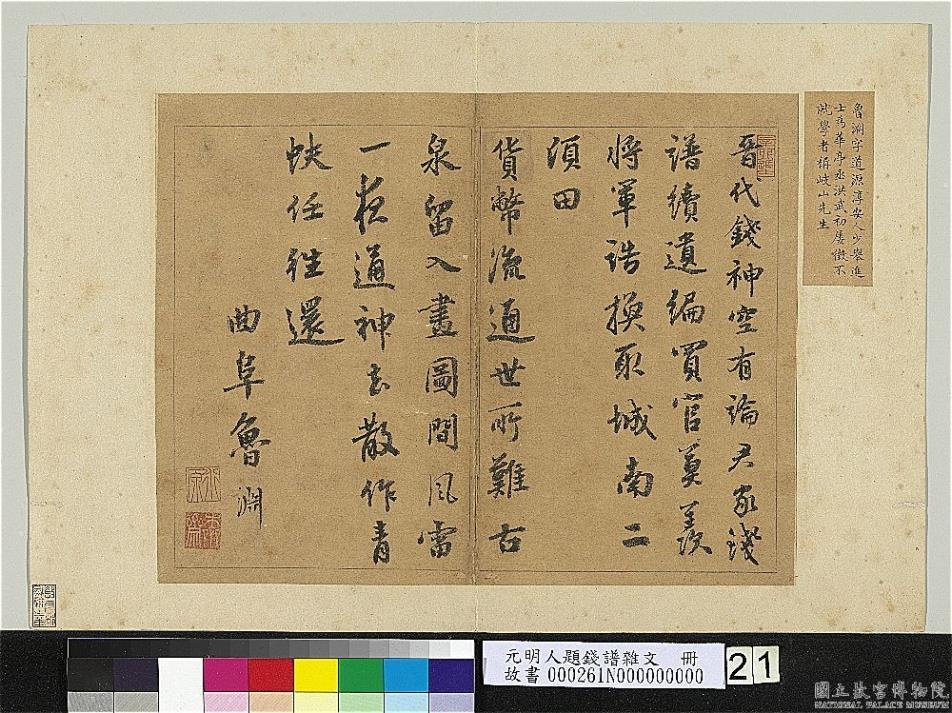 魯淵字道源淳安人少舉進
士為華亭丞洪武初屢徵不
就學者稱岐山先生
晉代錢神空有論尹家錢
譜續遺編買官莫羨
將軍誥換取城南二
頃田
貨幣流通世所難古
泉留入畫圖間風雷
一夜通神去散作青
蚨任往還
曲阜魯淵
元明人題錢譜雜文 冊
故書 000261N000000000
21
國立故宮博物院
NATIONAL PALACE MUSEUM